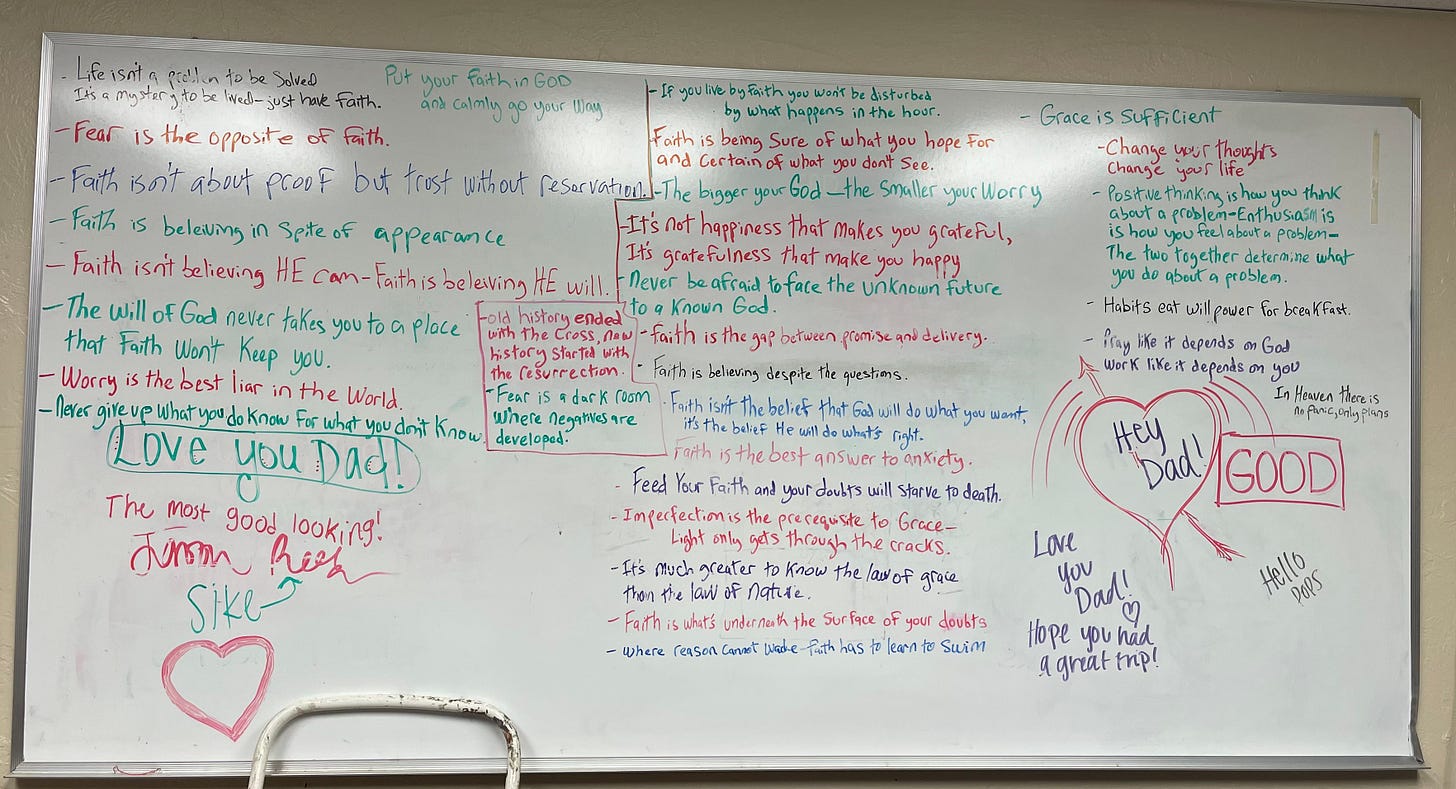 - Life isn't a problem to be Solved
It's a mystery to be lived - just have Faith.
Put your Faith in GOD
and calmly go your Way
- Fear is the opposite of faith.
- Faith isn't about proof but trust without reservation.
- Faith is beleiving in Spite of appearance
- Faith isn't believing HE can - Faith is beleiving HE will.
- The will of God never takes you to a place
that Faith Won't Keep you.
- Worry is the best liar in the World.
- Never give up what you do know For what you don't Know.
Love you Dad!
The most good looking!
Sike
- old history ended
with the Cross, new
history started with
the resurrection.
- Fear is a dark room
where negatives are
developed.
- If you live by Faith you won't be disturbed
by what happens in the hour.
Faith is being Sure of what you hope For
and Certain of what you don't See.
- The bigger your God - the Smaller your Worry
- It's not happiness that makes you grateful,
It's gratefulness that make you happy
- Never be afraid to face the unknown future
to a Known God.
- faith is the gap between promise and delivery.
- Faith is believing despite the questions.
- Faith isn't the belief that God will do what you want,
it's the belief He will do what's right.
Faith is the best answer to anxiety.
- Feed Your Faith and your doubts will starve to death.
- Imperfection is the prerequisite to Grace -
Light only gets through the cracks.
- It's much greater to know the law of grace
than the law of nature.
- Faith is what's underneath the Surface of your doubts
- where reason Cannot wade - Faith has to learn to Swim
- Grace is Sufficient
- Change your thoughts
Change your life
- Positive thinking is how you think
about a problem - Enthusiasm is
is how you feel about a problem -
The two together determine what
you do about a problem.
- Habits eat will power for breakfast.
- Pray like it depends on God
work like it depends on you
In Heaven there is
no panic, only plans
Hey
Dad!
GOOD
Love
you
Dad!
Hope you had
a great trip!
Hello
Pops